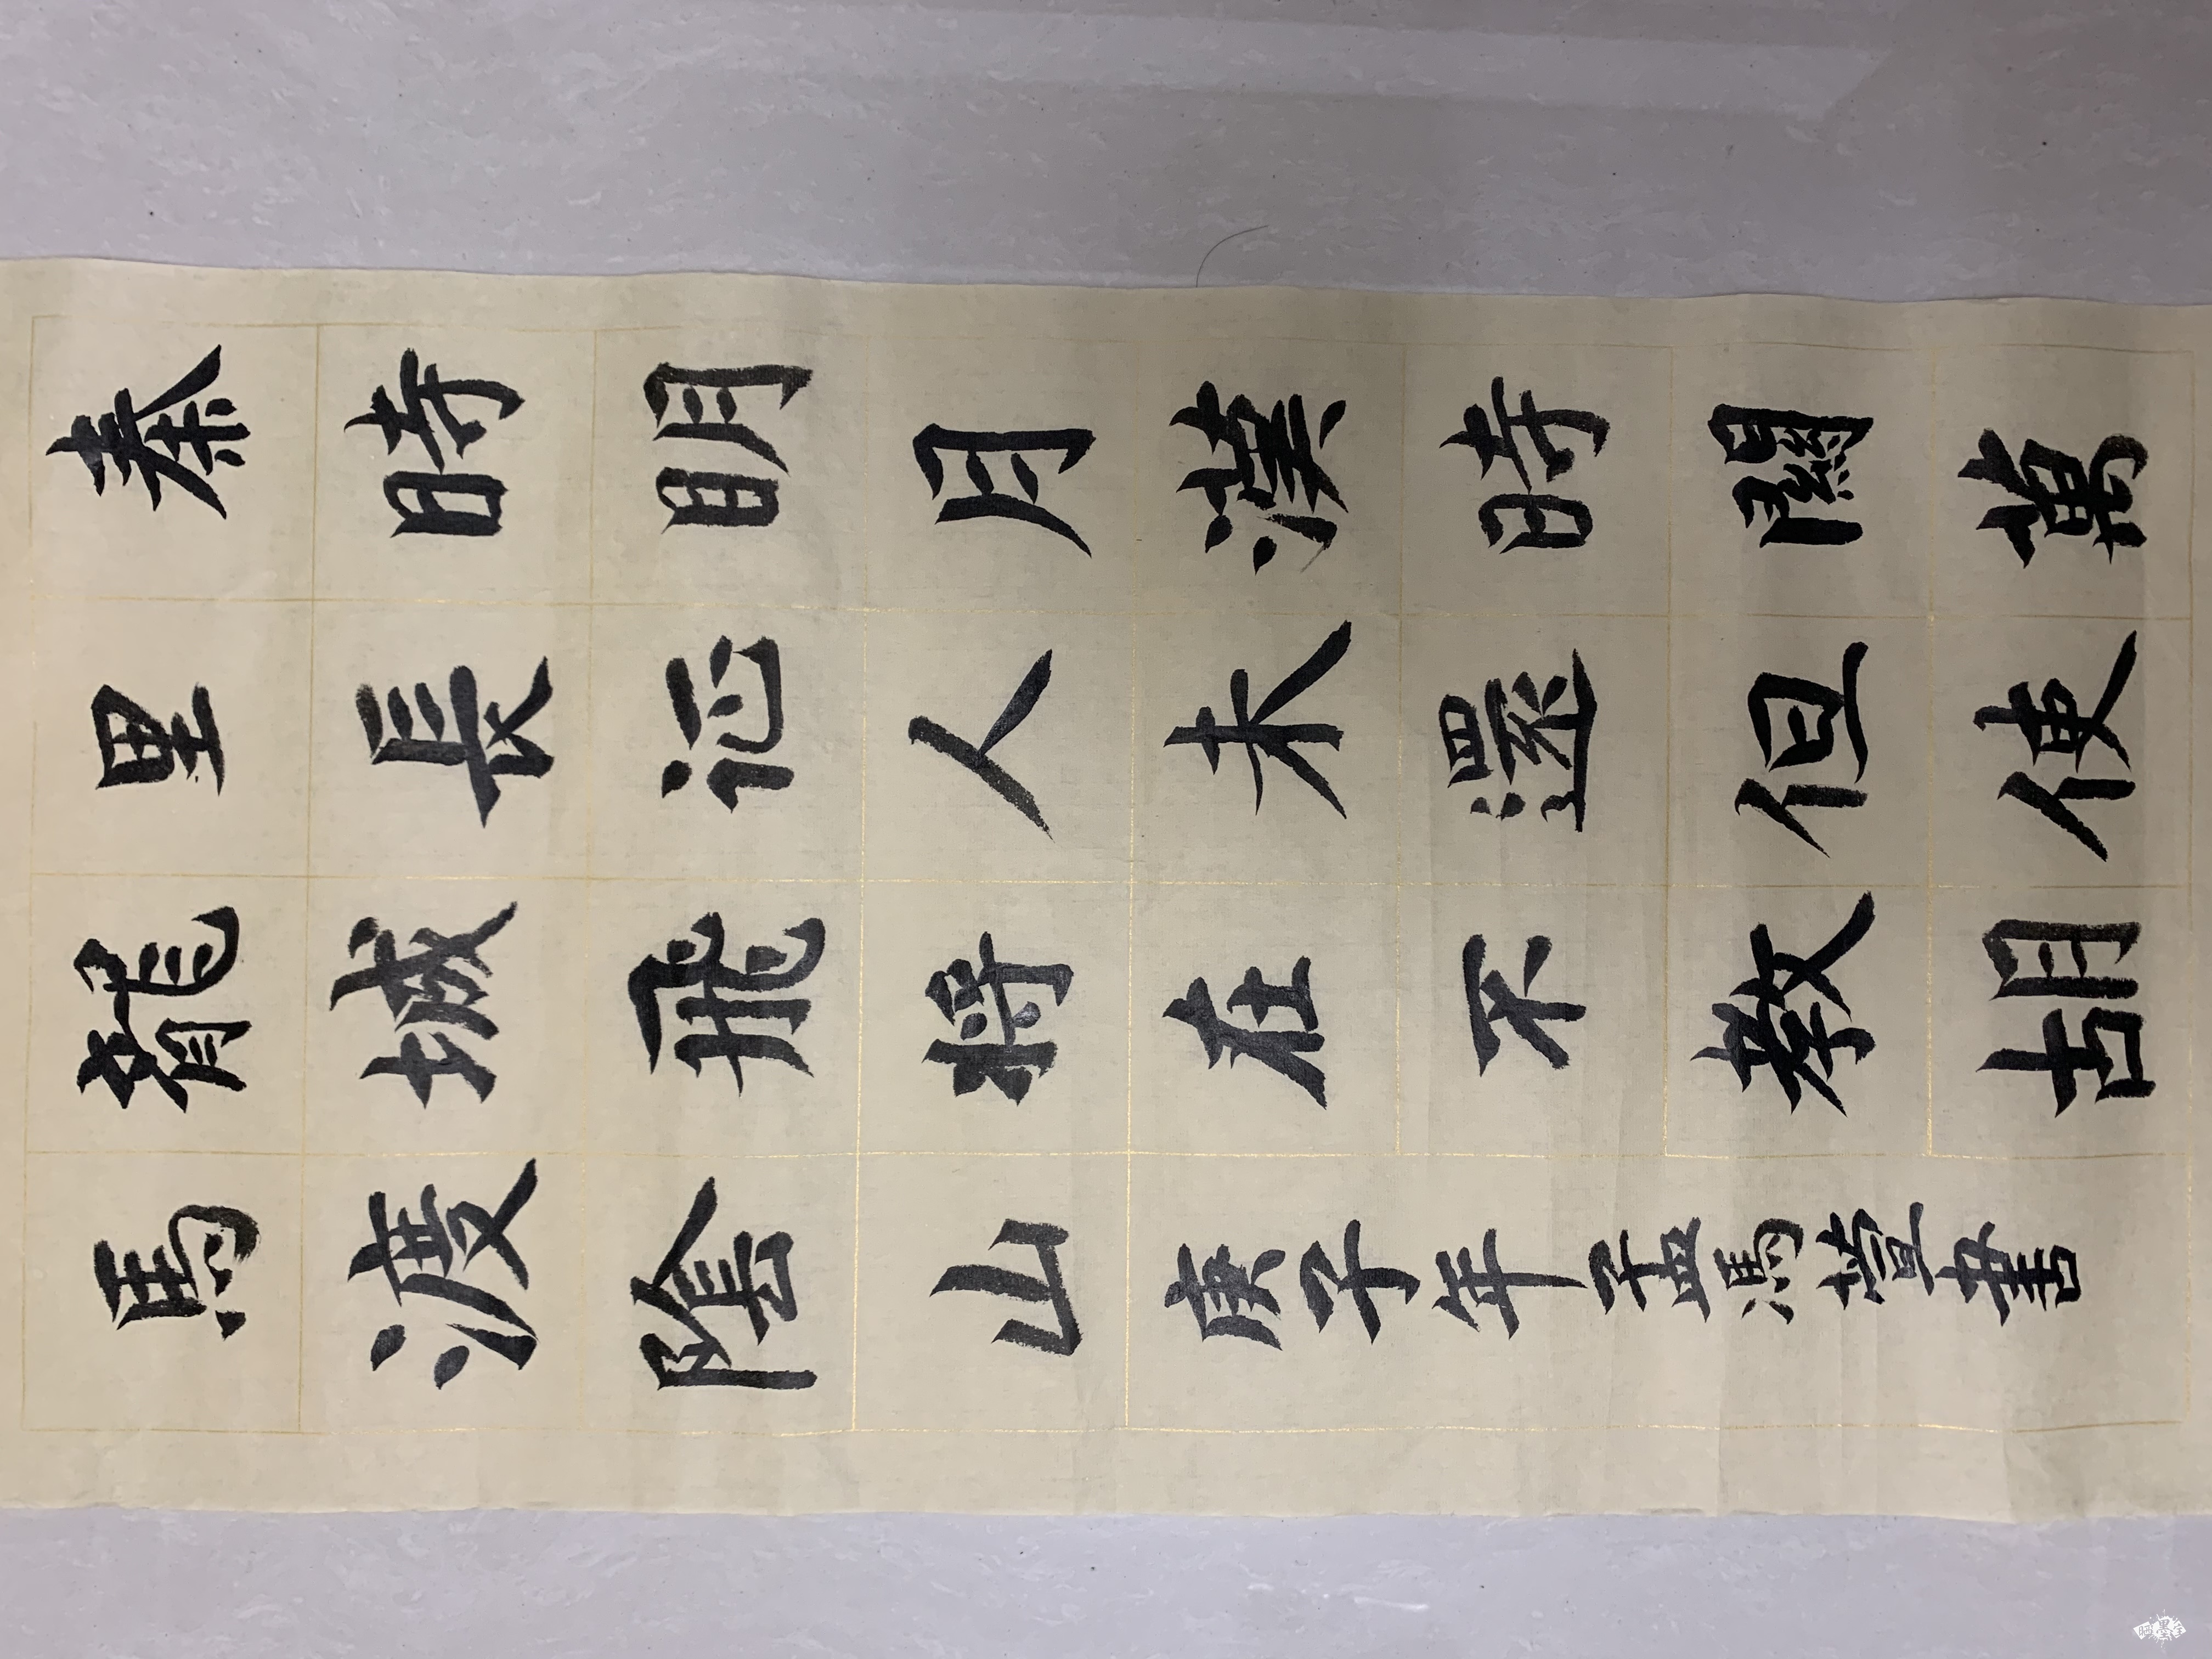 秦時明月漢時關萬
里長征人未還但使
龍城飛將在不教胡
馬渡陰山
庚子年孟馮書